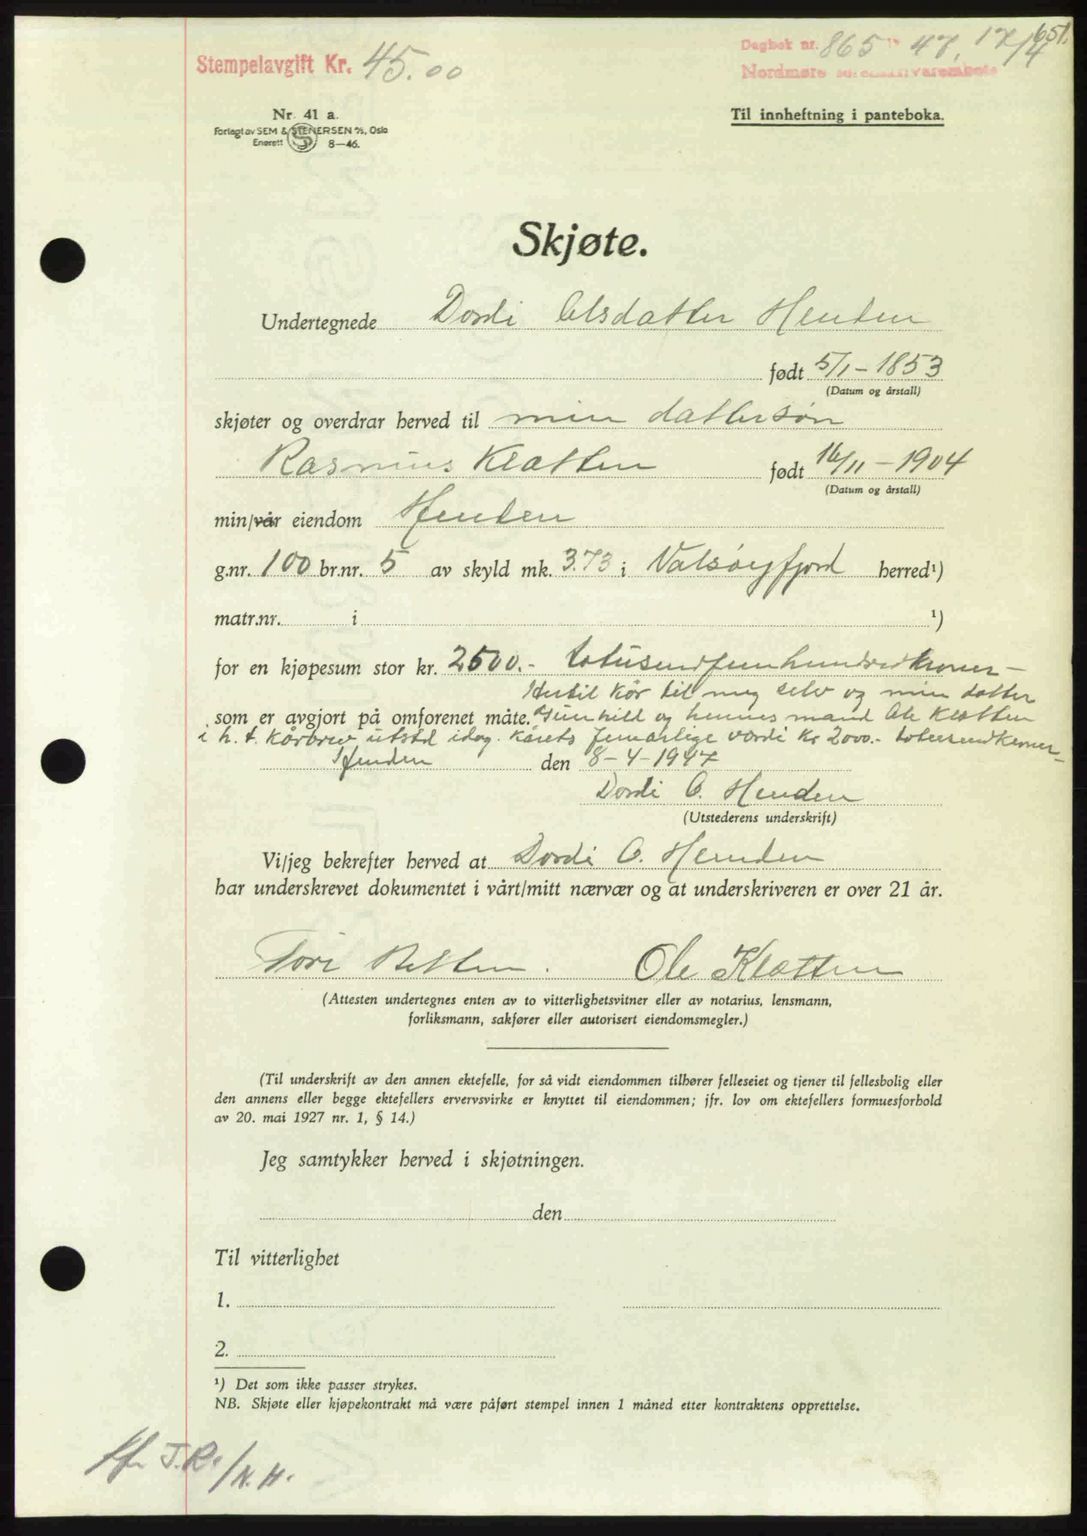 651.
Stempelavgift Kr. 45.00
Dagbok nr. 865 47, 17/4
Nordmøre sorenskriverembete
Nr. 41 a.
Forlagt av SEM & STENERSEN A/S, Oslo
Enerett 8—46.
Til innheftning i panteboka.
Skjøte.
Undertegnede Dordi Olsdatter Henden
født 5/1 - 1853
(Datum og årstall)
skjøter og overdrar herved til min dattersøn
Rasmus Kletten født 16/11 - 1904
(Datum og årstall)
min/vår eiendom Henden
g.nr. 100 br.nr. 5 av skyld mk. 3.73 i Valsøyfjord herred¹)
matr.nr. i ¹)
for en kjøpesum stor kr. 2500.- totusenfemhundredkroner -
Hertil kår til meg selv og min datter
som er avgjort på omforenet måte. Gunhild og hennes mand Ole Kletten
i h. t. kårbrev utstd idag. Kårets femårlige verdi Kr 2000.- totusendkroner-
Henden den 8-4-1947
Dordi O. Henden
(Utstederens underskrift)
Vi/jeg bekrefter herved at Dordi O. Henden
har underskrevet dokumentet i vårt/mitt nærvær og at underskriveren er over 21 år.
Ole Kletten
(Attesten undertegnes enten av to vitterlighetsvitner eller av notarius, lensmann,
forliksmann, sakfører eller autorisert eiendomsmegler.)
(Til underskrift av den annen ektefelle, for så vidt eiendommen tilhører felleseiet og tjener til fellesbolig eller
den annens eller begge ektefellers ervervsvirke er knyttet til eiendommen; jfr. lov om ektefellers formuesforhold
av 20. mai 1927 nr. 1, § 14.)
Jeg samtykker herved i skjøtningen.
den
Til vitterlighet
1.
2.
¹) Det som ikke passer strykes.
NB. Skjøte eller kjøpekontrakt må være påført stempel innen 1 måned etter kontraktens opprettelse.
J.R./N.H.